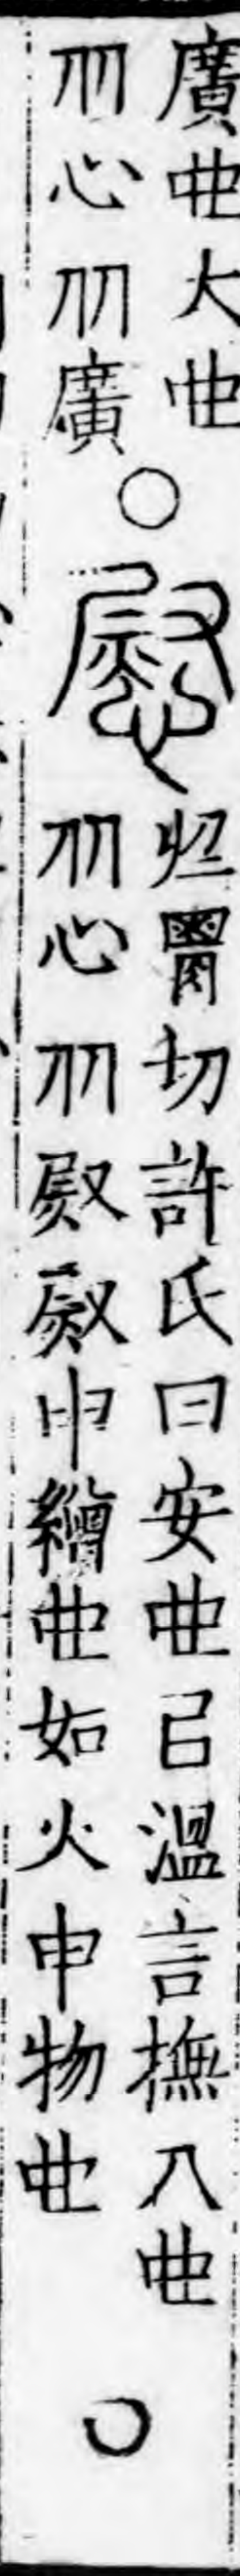 廣也大也
从心从廣
○
慰
於胃切許氏曰安也㠯溫言撫人也
从心从尉尉申繒也如火申物也
○